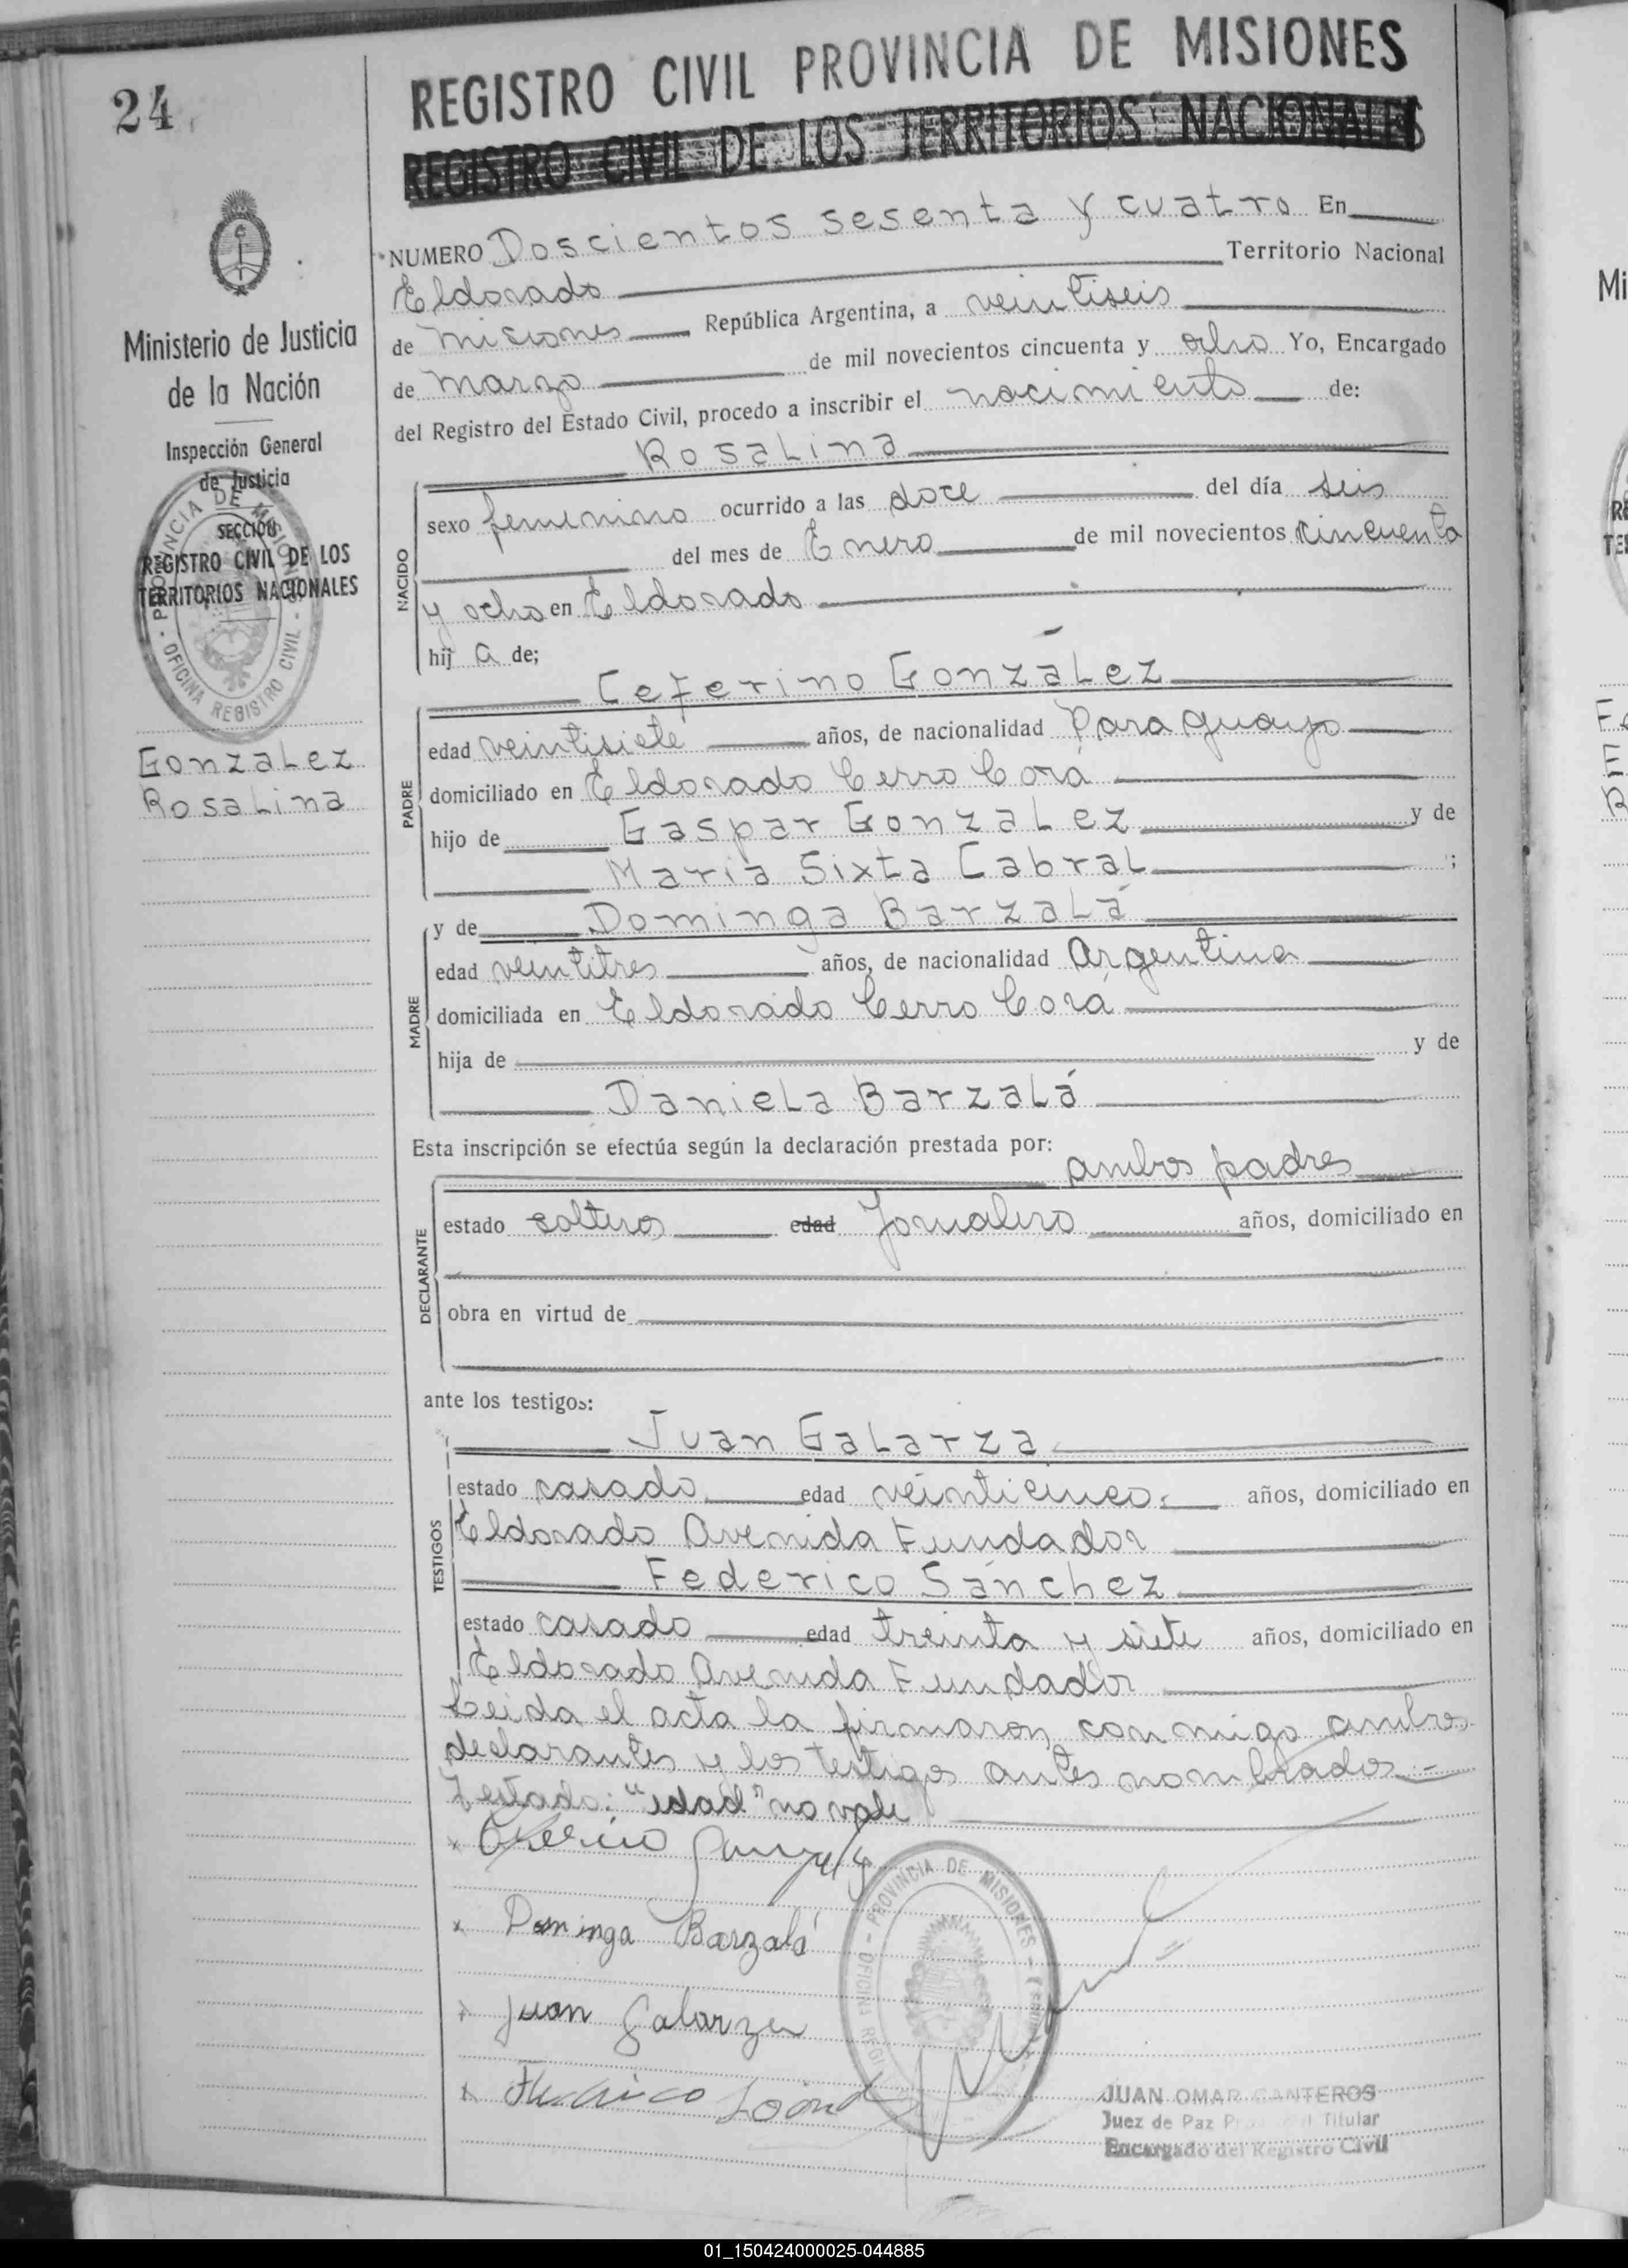 24
REGISTRO CIVIL PROVINCIA DE MISIONES
REGISTRO CIVIL DE LOS TERRITORIOS NACIONALES
NUMERO Doscientos sesenta y cuatro En
Eldorado Territorio Nacional
de misiones República Argentina, a veintiseis
de marzo de mil novecientos cincuenta y ocho Yo, Encargado
del Registro del Estado Civil, procedo a inscribir el nacimiento de:
Rosalina
Ministerio de Justicia
de la Nación
Inspección General
de Justicia
SECCIÓN
REGISTRO CIVIL DE LOS
TERRITORIOS NACIONALES
PROVINCIA DE MISIONES - OFICINA REGISTRO CIVIL -
Gonzalez
Rosalina
NACIDO
sexo femenino ocurrido a las doce del día seis
del mes de Enero de mil novecientos cincuenta
y ocho en Eldorado
hij a de;
Ceferino González
PADRE
edad veintisiete años, de nacionalidad Paraguayo
domiciliado en Eldorado Cerro Corá
hijo de Gaspar Gonzalez y de
Maria Sixta Cabral ;
y de Dominga Barzalá
MADRE
edad veintitres años, de nacionalidad Argentina
domiciliada en Eldorado Cerro Corá
hija de y de
Daniela Barzalá
Esta inscripción se efectúa según la declaración prestada por:
ambos padres
DECLARANTE
estado solteros edad Jornalero años, domiciliado en
obra en virtud de
ante los testigos:
Juan Galarza
TESTIGOS
estado casado edad veinticinco años, domiciliado en
Eldorado Avenida Fundador
Federico Sánchez
estado casado edad treinta y siete años, domiciliado en
Eldorado Avenida Fundador
Leida el acta la firmaron conmigo ambos
declarantes y los testigos antes nombrados.-
Testado: "edad" no vale
Dominga Barzalá
Juan Galarza
Federico
PROVINCIA DE MISIONES
JUAN OMAR CANTEROS
Juez de Paz Titular
Encargado del Registro Civil
01_150424000025-044885